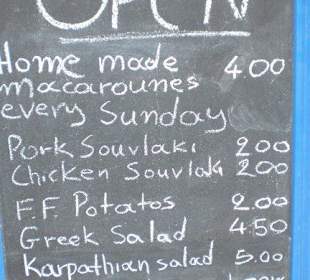 OPEN
Home made 400
macarounes
every Sunday
Pork Souvlaki 200
Chicken Souvlaki 200
F.F. Potatos 2.00
Greek Salad 4.50
Karpathian salad 5.00